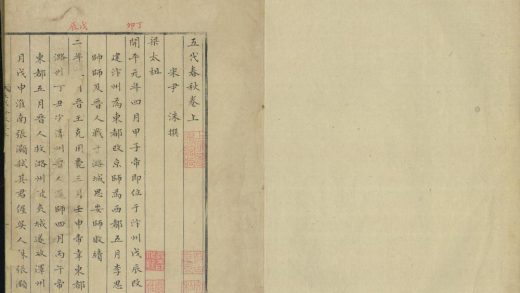 丁卯
戊辰
五代春秋卷上
宋尹 洙撰
梁太祖
開平元年四月甲子帝即位于汴州戊辰改
建汴州為東都改京師為西都五月李思
帥師及晉人戰于潞城思安師敗績
二年 月晉王克用薨三月壬申帝幸東都
潞州丁丑次澤州晉人 師四月丙午帝
東都五月晉人救潞州攻夾城遂攻澤州
月戊申淮南張顥弒其君 吳人誅張顥